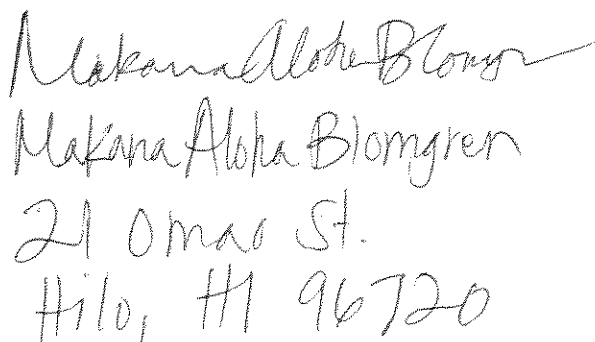 Makana Aloha Blomgren
Makana Aloha Blomgren
21 Omao St.
Hilo, HI 96720